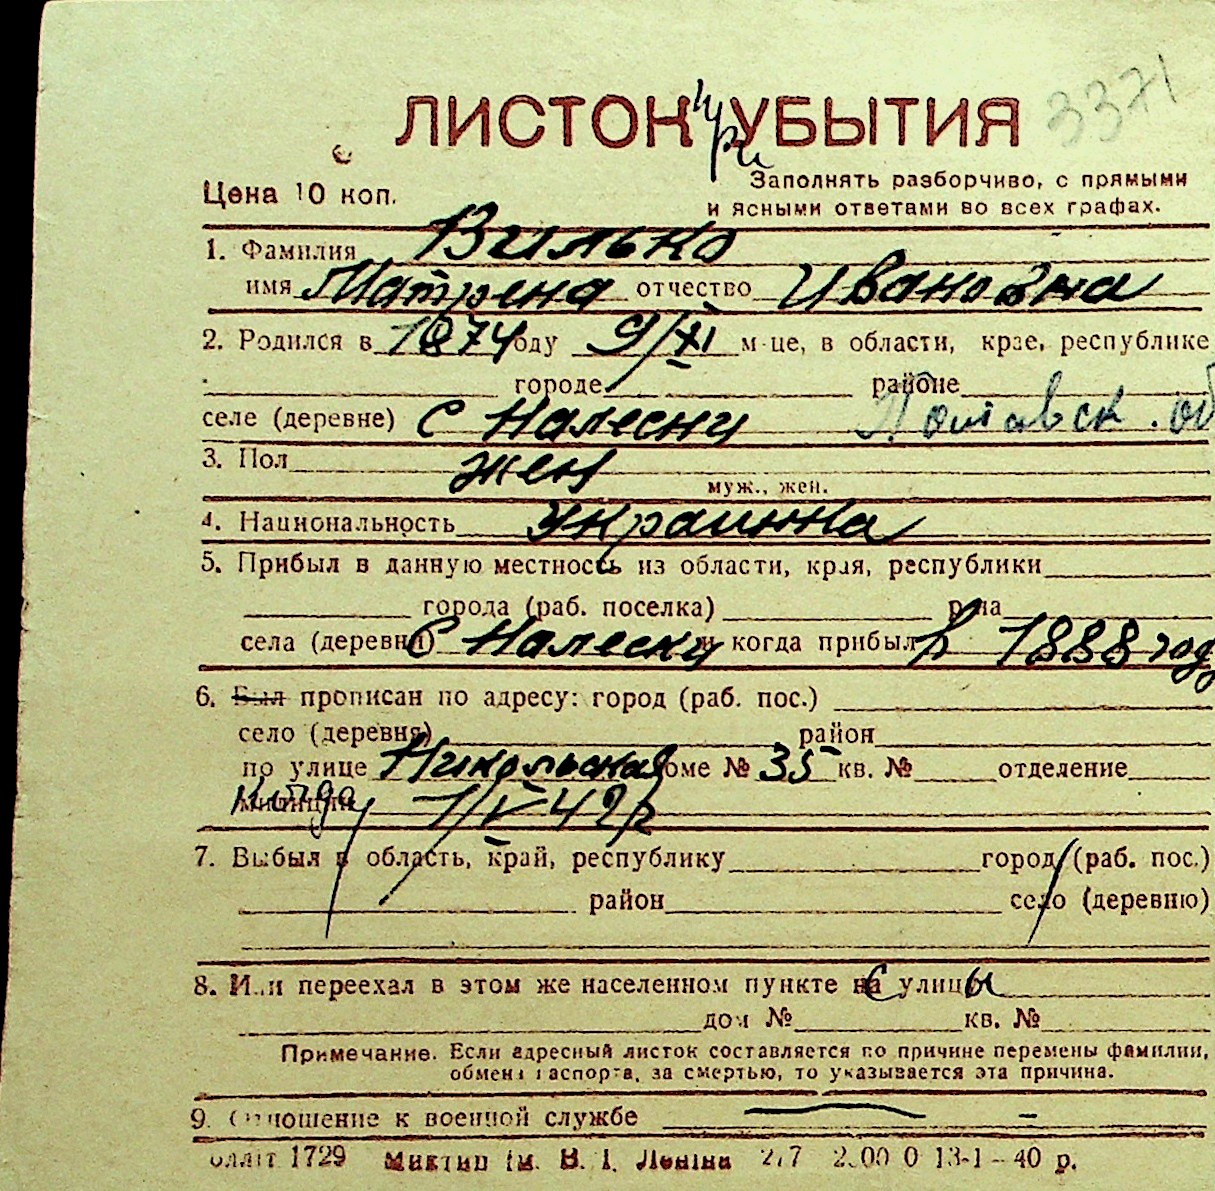 3371
ЛИСТОК при УБЫТИЯ
Цена 10 коп.
Заполнять разборчиво, с прямыми
и ясными ответами во всех графах.
1. Фамилия Вилько
имя Матрена отчество Ивановна
2. Родился в 1874 году 9/XI м-це, в области, крае, республике
городе районе
селе (деревне) с Налесни Полтавск. об
3. Пол жен
муж., жен.
4. Национальность украинка
5. Прибыл в данную местность из области, края, республики
города (раб. поселка) р-на
села (деревни) с Налески и когда прибыл в 1888 году
6. Был прописан по адресу: город (раб. пос.)
село (деревня) район
по улице Никольская доме № 35 кв. № отделение
милиции 1/V 42 г
7. Выбыл в область, край, республику город (раб. пос.)
район село (деревню)
8. Или переехал в этом же населенном пункте на с улицы
дом № кв. №
Примечание. Если адресный листок составляется по причине перемены фамилии,
обмена паспорта, за смертью, то указывается эта причина.
9. Отношение к военной службе –
1729 ім. В. І. Леніна 13-1-40 р.